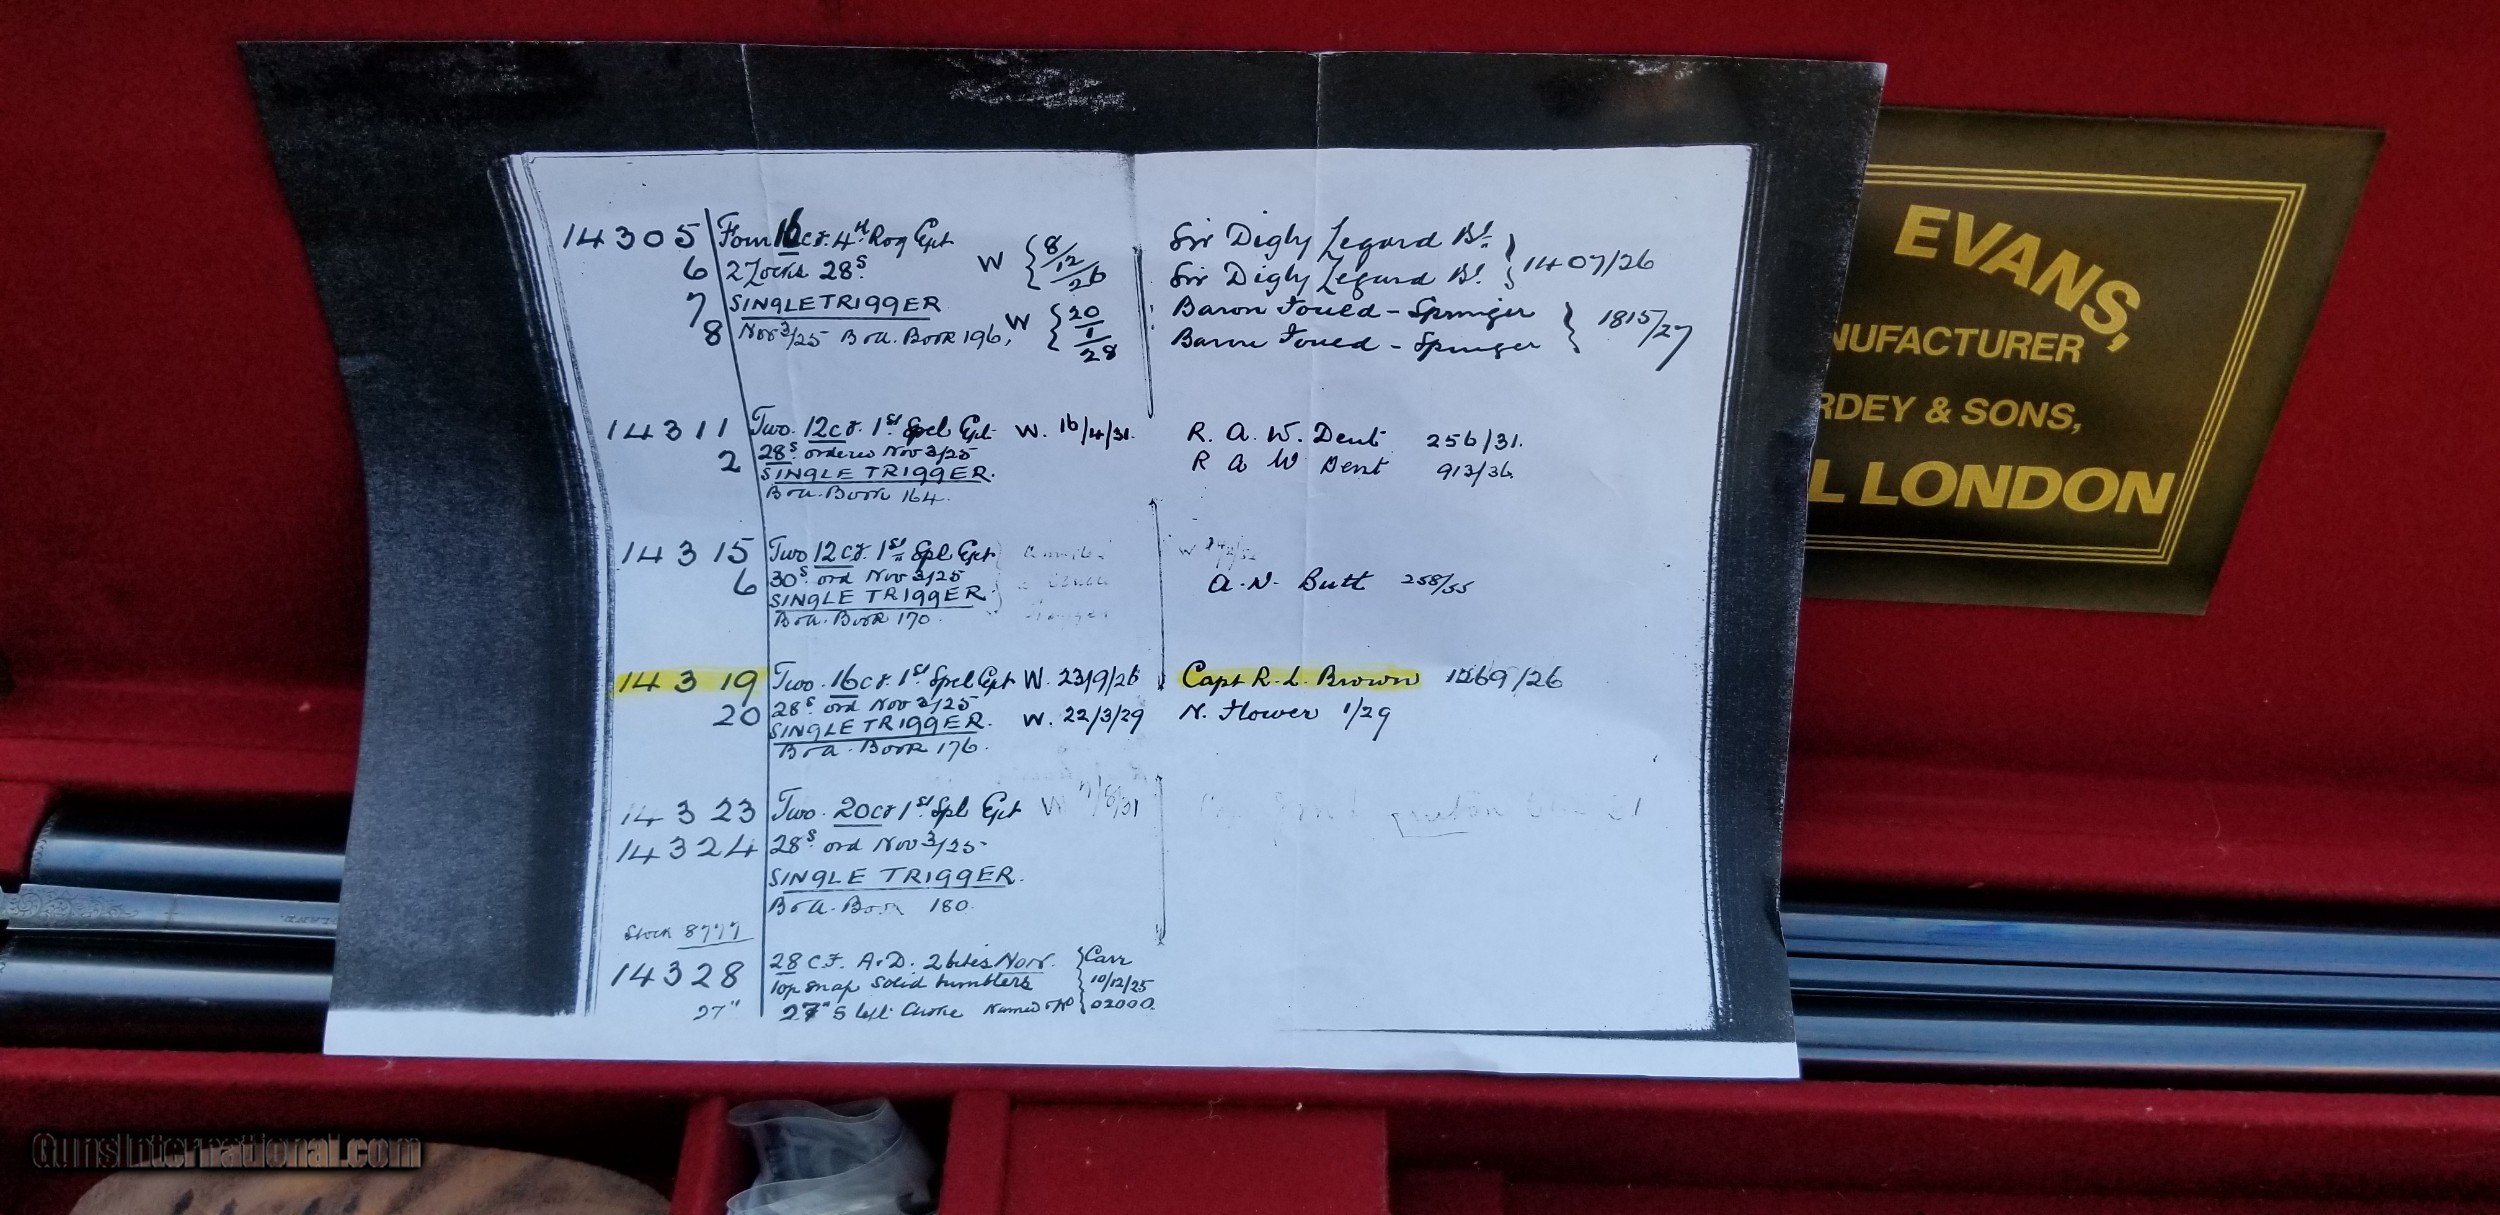 14305 Four 16 c.f. 4th Roy Ejct W { 8/12/26 Sir Digby Legard Bt. } 1407/26
6 2 Locks 28s. Sir Digby Legard Bt.
7 SINGLE TRIGGER W { 20/1/28 Baron Fould - Springer } 1815/27
8 Nov 3/25 Bra. Book 196, Baron Fould - Springer
14311 Two. 12 c.f. 1st Spcl Ejct W. 16/4/31. R. A. W. Dent 256/31.
2 28s. ordered Nov 3/25 R A W Dent 913/36.
SINGLE TRIGGER.
Bra. Book 164.
14315 Two 12 c.f. 1st Spl Ejct
6 30s. ord Nov 3/25 A. N. Butt 258/55
SINGLE TRIGGER.
Bra. Book 170.
14319 Two. 16 c.f. 1st Spcl Ejct W. 23/9/26 Capt R. L. Brown 1269/26
20 28s ord Nov 3/25 W. 22/3/29 N. Flower 1/29
SINGLE TRIGGER.
Bra. Book 176.
14323 Two. 20 c.f 1st Spl Ejct W 11/8/31
14324 28s. ord Nov 3/25-
SINGLE TRIGGER.
Bra. Book 180.
Stock 8777
14328 28 C.F. A.D. 2 bites Norr. } Carr
Top snap solid tumblers 10/12/25
27" 27"s left Choke Named & No 02000.
EVANS,
NUFACTURER
RDEY & SONS,
L LONDON
GunsInternational.com